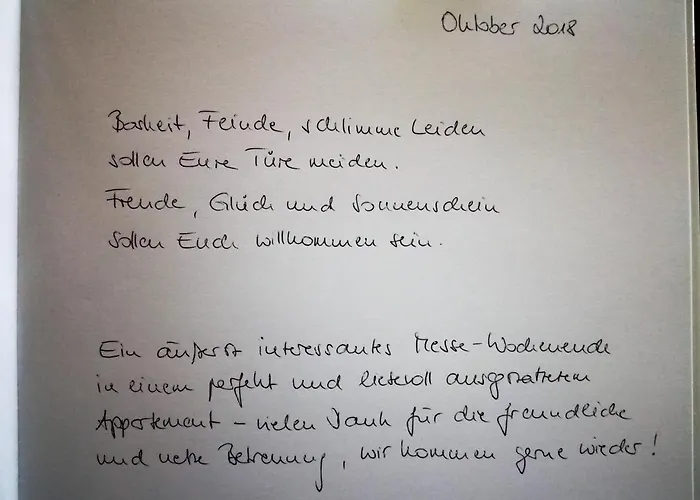 Oktober 2018
Bosheit, Feinde, schlimme Leiden
sollen Eure Türe meiden.
Freude, Glück und Sonnenschein
sollen Euch willkommen sein.
Ein äußerst interessantes Messe-Wochenende
in einem perfekt und liebevoll ausgestatteten
Appartement – vielen Dank für die freundliche
und nette Betreuung, wir kommen gerne wieder!